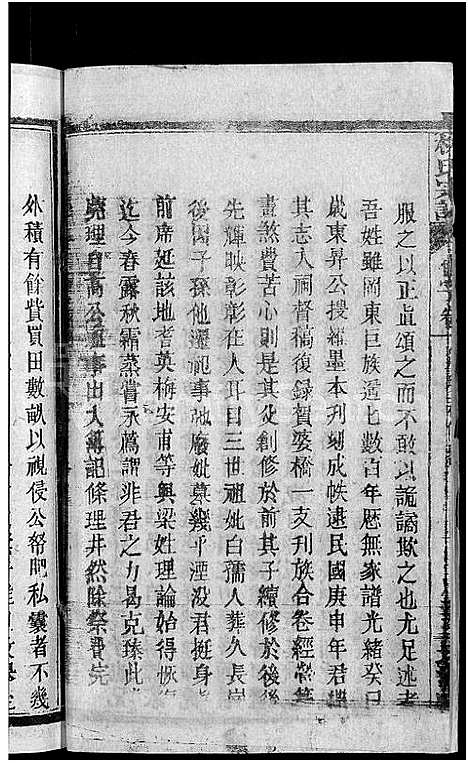 服之以正眞頌之而不敢以詭譎欺之也尤足述者
吾姓雖岡東巨族遞七數百年曆無家譜光緒癸巳
歲東昇公授稚墨本刋刻成帙逮民國庚申年君繼
其志入祠督稿復録賀婆橋一支刋族合卷經營籌
畫煞費苦心則是其父創修於前其子續修於後後
先輝映彰彰在人耳目三世祖妣白孺人葬久長崗
後因子孫他遷祀事弛廢妣墓幾乎湮没君挺身
前席延該地耆英梅安甫等與梁姓理論始得恢
迄今春露秋霜蒸嘗永薦謂非君之力曷克臻此
堯理自高公遇事出入簿記條理井然除祭費完
外積有餘貲買田數畝以視侵公帑肥私囊者不幾